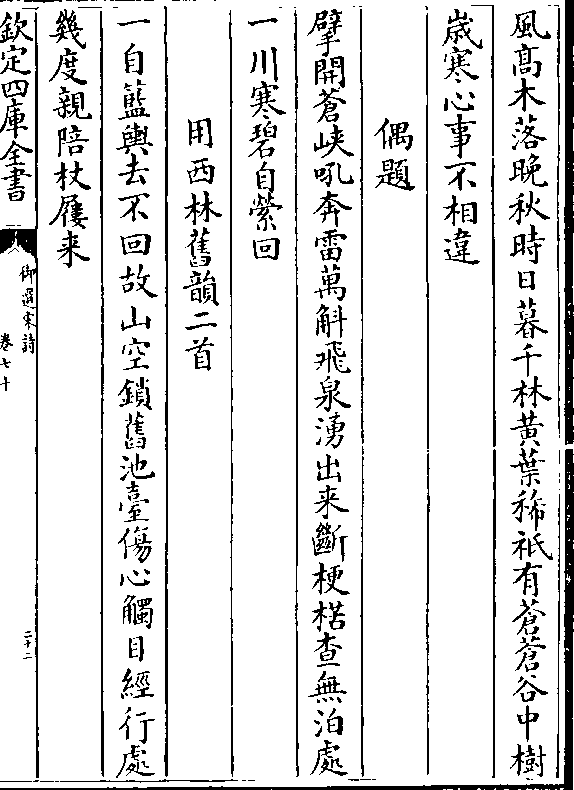 風髙木落晩秋時日暮千林黄葉稀祗有蒼蒼谷中樹
歳寒心事不相違
偶題
擘開蒼峽吼奔雷萬斛飛泉湧出来斷梗枯查無泊處
一川寒碧自縈回
用西林舊韻二首
一自籃輿去不回故山空鎖舊池臺傷心觸目經行處
幾度親陪杖屨来
欽定四庫全書
御選宋詩
卷七十
二十二